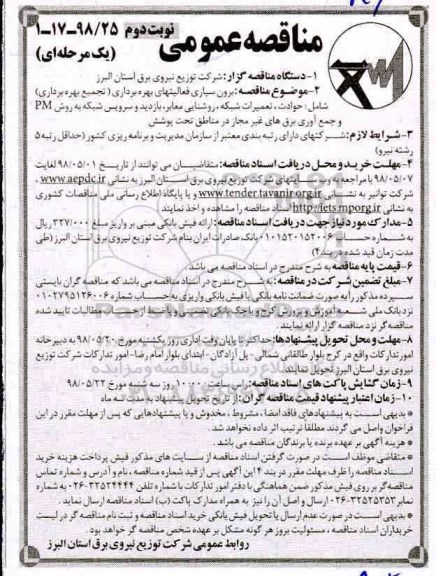 مناقصه عمومی
نوبت دوم
۱-۱۷-۹۸/۲۵
(یک مرحله ای)
۱-دستگاه مناقصه گزار: شرکت توزیع نیروی برق استان البرز
۲-موضوع مناقصه: برون سپاری فعالیتهای بهره برداری (تجمیع بهره برداری)
شامل: حوادث، تعمیرات شبکه، روشنایی معابر، بازدید و سرویس شبکه به روش PM
و جمع آوری برق های غیر مجاز در مناطق تحت پوشش
۳-شرایط لازم: شرکتهای دارای رتبه بندی معتبر از سازمان مدیریت و برنامه ریزی کشور (حداقل رتبه ۵
رشته نیرو)
۴-مهلت خرید و محل دریافت اسناد مناقصه: متقاضیان می توانند از تاریخ ۹۸/۰۵/۰۱ لغایت
۹۸/۰۵/۰۷ با مراجعه به وب سایتهای شرکت توزیع نیروی برق استان البرز به نشانی www.aepdc.ir
شرکت توانیر به نشانی www.tender.tavanir.org.ir و یا پایگاه اطلاع رسانی ملی مناقصات کشوری
به نشانی http://iets.mporg.ir اسناد مناقصه را مشاهده و اخذ نمایند
۵-مدارک مورد نیاز جهت دریافت اسناد مناقصه: ارائه فیش بانکی مبنی بر واریز مبلغ ۳۲۷/۰۰۰ ریال
به شماره حساب ۰۱۰۱۵۲۰۱۵۲۰۰۶ بانک صادرات ایران بنام شرکت توزیع نیروی برق استان البرز (طی
مدت زمان قید شده در بند ۴)
۶-قیمت پایه مناقصه به شرح مندرج در اسناد مناقصه می باشد.
۷-مبلغ تضمین شرکت در مناقصه: به شرح مندرج در اسناد مناقصه می باشد که مناقصه گران بایستی
سپرده مذکور را به صورت ضمانت نامه بانکی یا فیش بانکی واریزی به حساب شماره ۰۱۰۲۷۹۵۱۲۶۰۰۶
نزد بانک ملی شعبه آموزش و پرورش کرج و یا چک بانکی تضمینی و یا سند از حساب مطالبات تایید شده
مناقصه گر نزد مناقصه گزار ارائه نمایند.
۸-مهلت و محل تحویل پیشنهادها: حداکثر تا پایان وقت اداری روز یکشنبه مورخ ۹۸/۰۵/۲۰ به دبیرخانه
امور تدارکات واقع در کرج بلوار طالقانی شمالی - پل آزادگان - ابتدای بلوار امام رضا - امور تدارکات شرکت توزیع
نیروی برق استان البرز تحویل نمایند.
۹-زمان گشایش پاکت های اسناد مناقصه: راس ساعت ۱۰:۰۰ روز سه شنبه مورخ ۹۸/۰۵/۲۲
۱۰-زمان اعتبار پیشنهاد قیمت مناقصه گران: از تاریخ تحویل پیشنهاد به مدت سه ماه
* بدیهی است به پیشنهادهای فاقد امضا، مشروط، مخدوش و یا پیشنهادهایی که پس از مهلت مقرر در این
فراخوان واصل می گردند مطلقا ترتیب اثر داده نخواهد شد.
* هزینه آگهی بر عهده برنده یا برندگان مناقصه می باشد.
* متقاضی موظف است در صورت گرفتن اسناد مناقصه از سایت های مذکور فیش پرداخت هزینه خرید
اسناد مناقصه را ظرف مهلت مقرر در بند ۴ این آگهی پس از قید شماره مناقصه، نام و آدرس و شماره تماس
مناقصه گر بر روی فیش مذکور ضمن هماهنگی با دفتر امور تدارکات با شماره تلفن ۰۲۶-۳۲۵۲۴۴۴۴ به شماره
نمابر ۰۲۶-۳۲۵۲۵۳۵۳ ارسال و اصل آن را نیز به همراه مدارک پاکت (ب) اسناد مناقصه ارسال نماید.
* بدیهی است در صورت عدم ارسال یا تحویل فیش بانکی خرید اسناد مناقصه و ثبت نام مناقصه گر در لیست
خریداران اسناد مناقصه، مسئولیت بروز هر گونه مشکل بر عهده شخص مناقصه گر خواهد بود.
روابط عمومی شرکت توزیع نیروی برق استان البرز